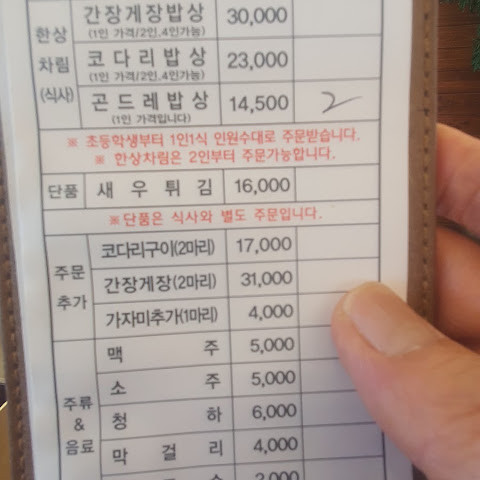 한상
차림
(식사)
간장게장밥상 30,000
(1인 가격/2인.4인가능)
코다리밥상 23,000
(1인 가격/2인.4인가능)
곤드레밥상 14,500 2
(1인 가격입니다)
※ 초등학생부터 1인1식 인원수대로 주문받습니다.
※ 한상차림은 2인부터 주문가능합니다.
단품 새우튀김 16,000
※단품은 식사와 별도 주문입니다.
주문
추가
코다리구이(2마리) 17,000
간장게장(2마리) 31,000
가자미추가(1마리) 4,000
주류
&
음료
맥주 5,000
소주 5,000
청하 6,000
막걸리 4,000
2,000